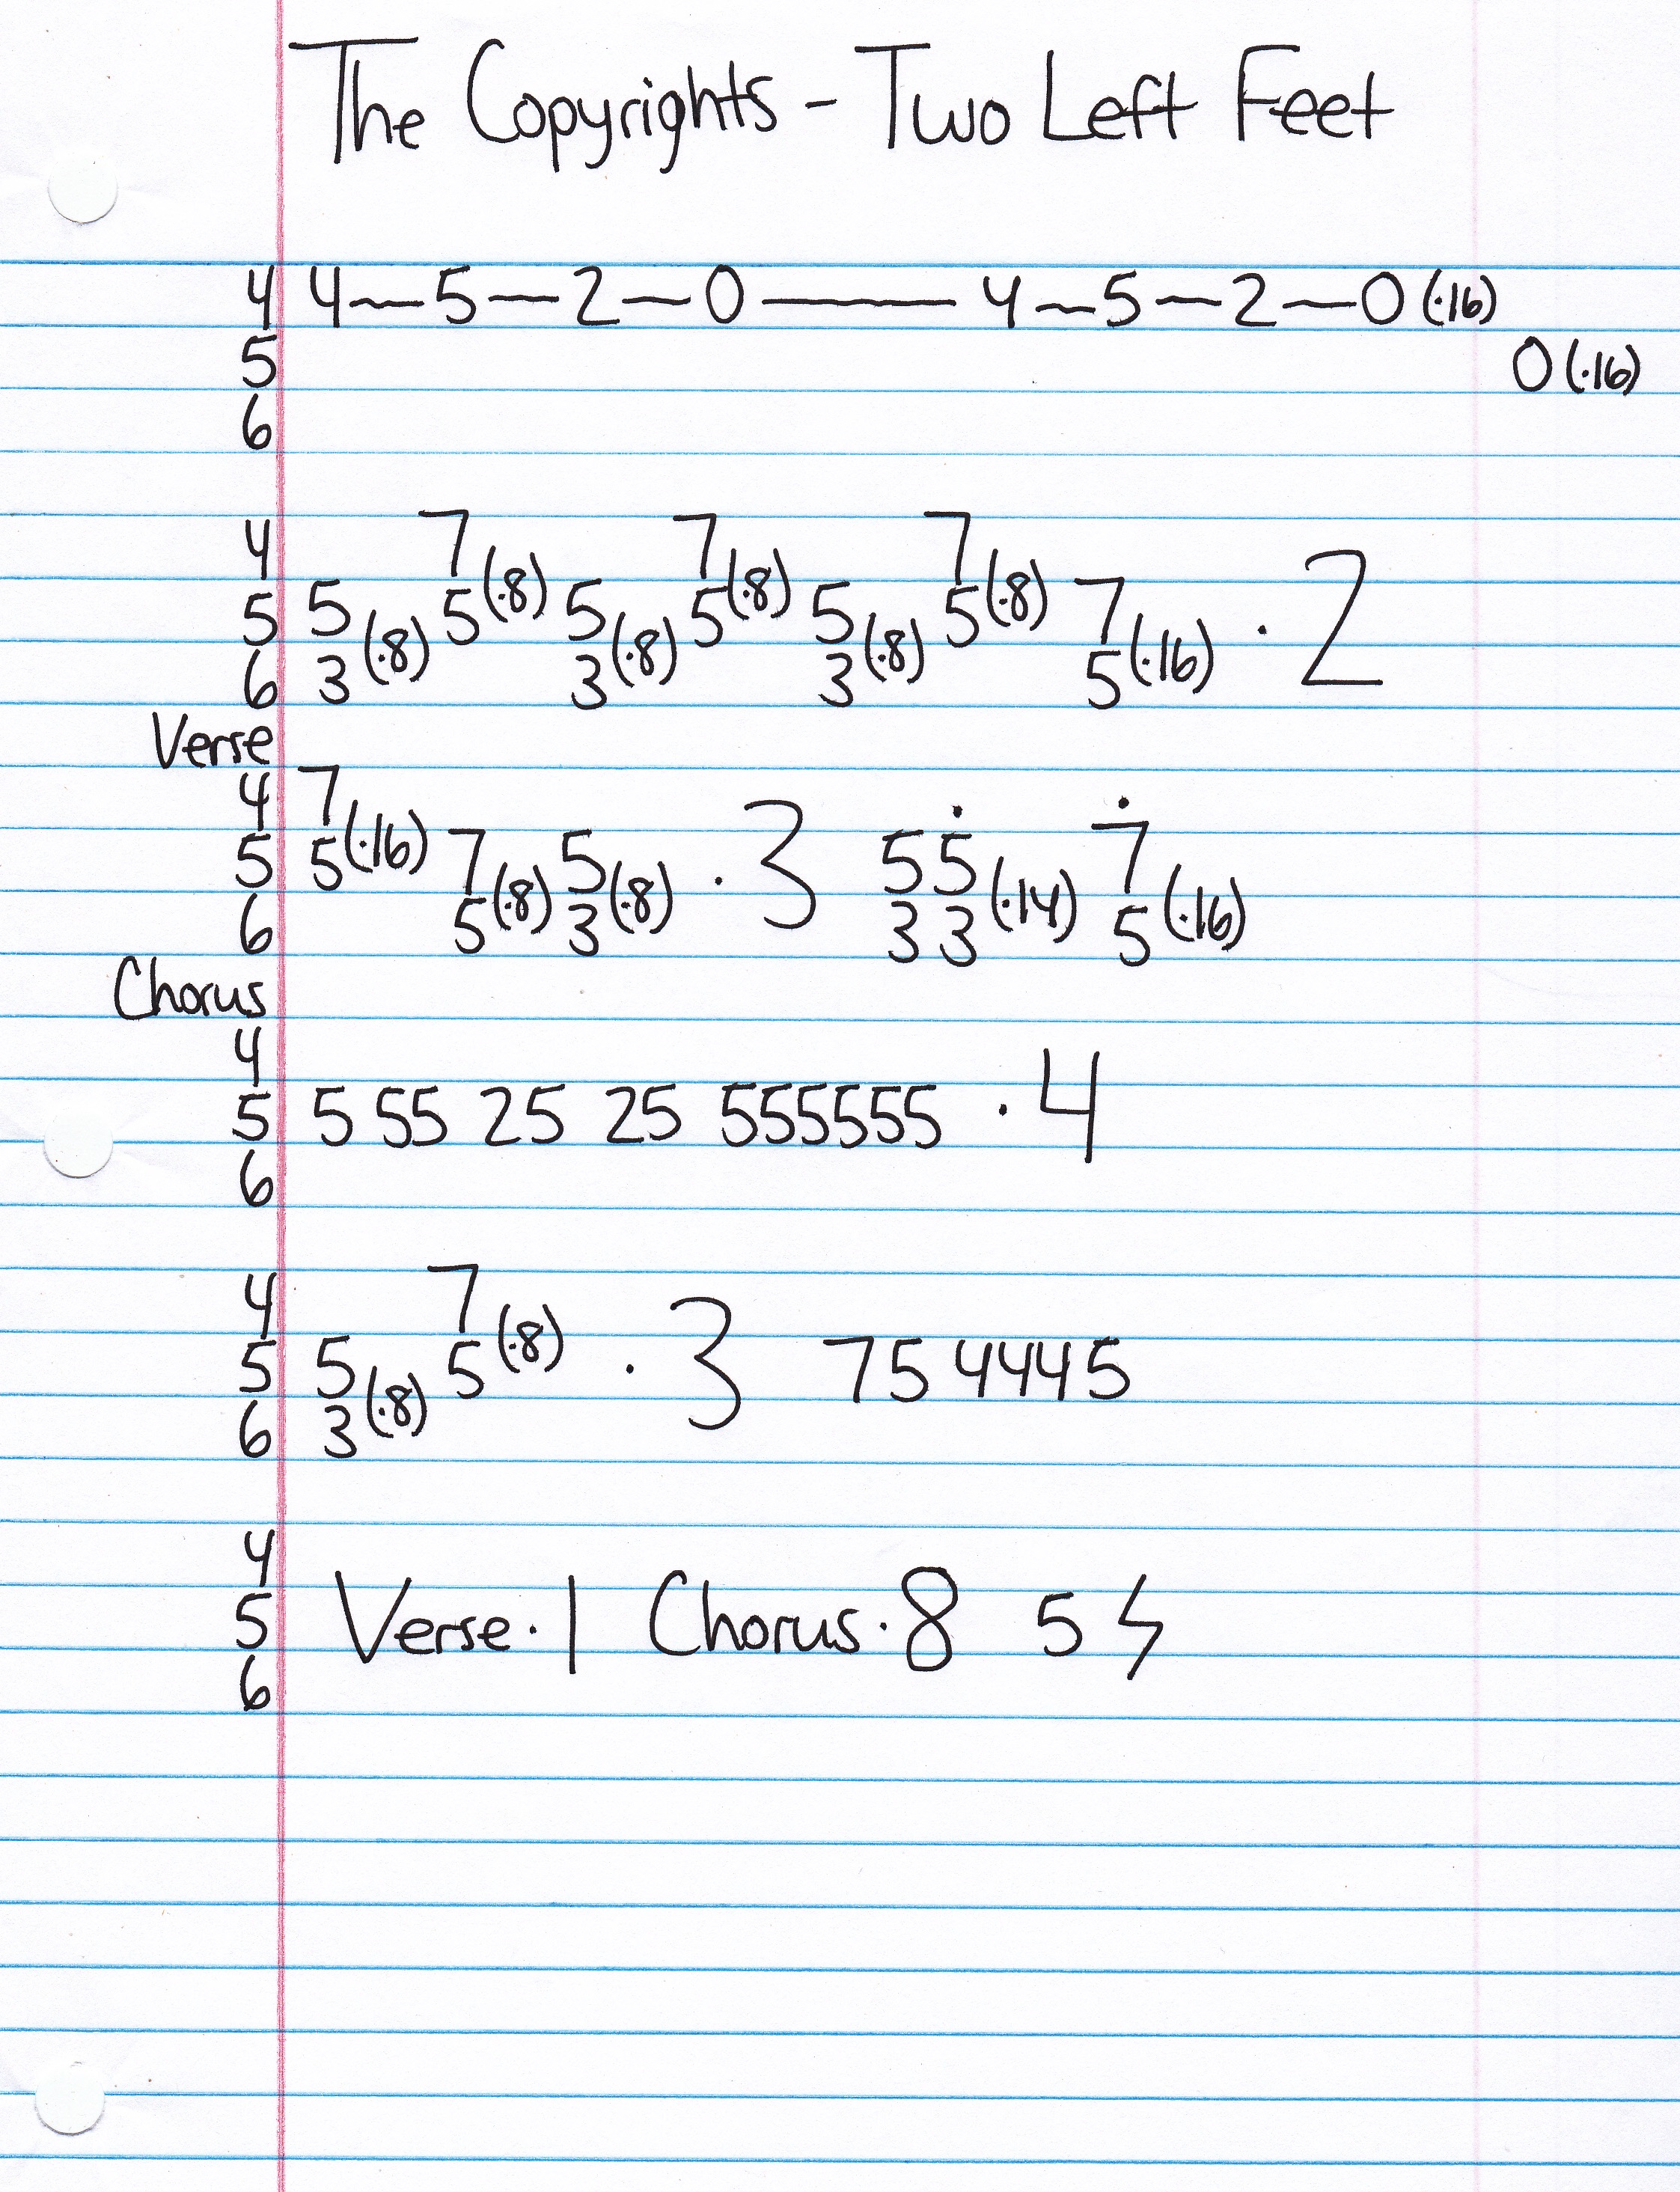 The Copyrights - Two Left Feet
4 4—5—2—0——4—5—2—0(·16)
5 0(·16)
6
4 7 7 7
5 5 5(·8) 5 5(·8) 5 5(·8) 7 · 2
6 3(·8) 3(·8) 3(·8) 5(·16)
Verse
4 7
5 5(·16) 7 5 · 3 5 5̇ 7̇
6 5(·8) 3(·8) 3 3(·14) 5(·16)
Chorus
4
5 5 55 25 25 555555 · 4
6
4 7
5 5 5(·8) · 3 7 5 4 4 4 5
6 3(·8)
4
5 Verse · 1 Chorus · 8 5 ϟ
6